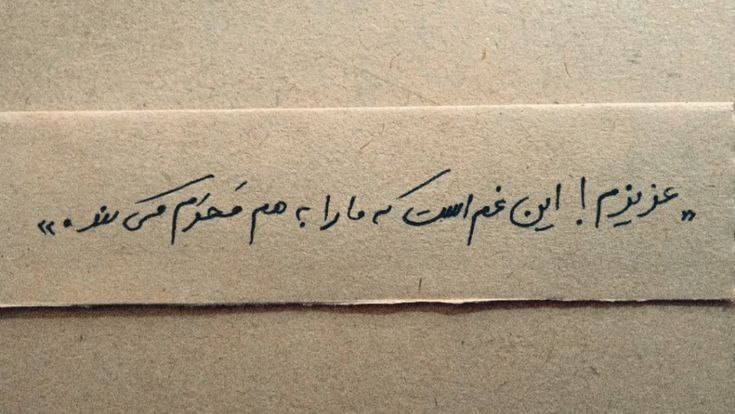 «عزیزم! این غم است که ما را به هم مَحرَم می کند.»